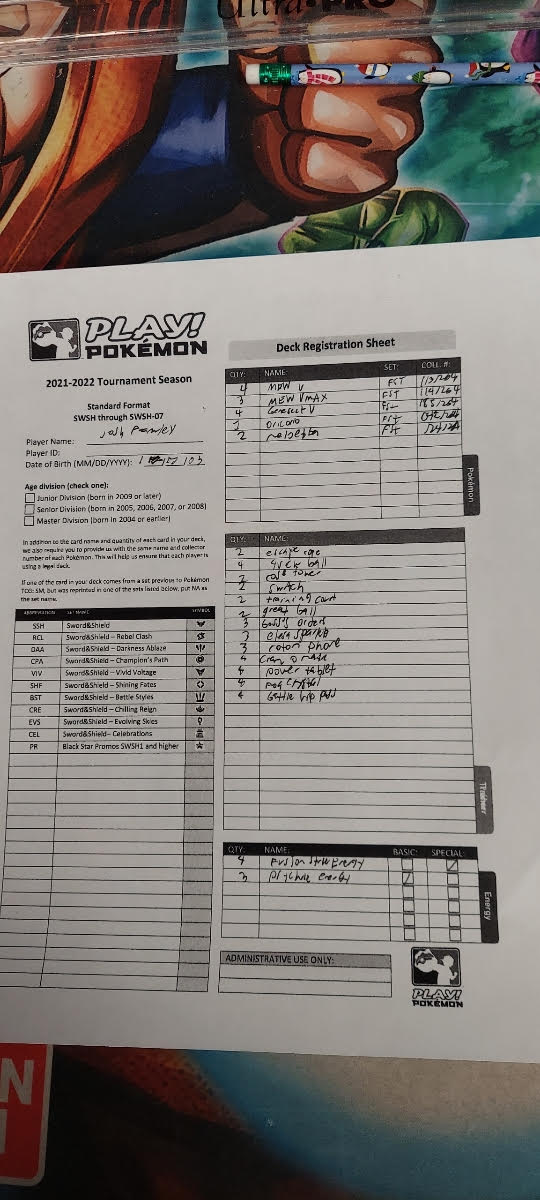 Ultra•PRO
PLAY!
POKÉMON
Deck Registration Sheet
2021-2022 Tournament Season
Standard Format
SWSH through SWSH-07
Player Name: Josh
Player ID:
Date of Birth (MM/DD/YYYY):
Age division (check one):
Junior Division (born in 2009 or later)
Senior Division (born in 2005, 2006, 2007, or 2008)
Master Division (born in 2004 or earlier)
In addition to the card name and quantity of each card in your deck,
we also require you to provide us with the same name and collector
number of each Pokémon. This will help us ensure that each player is
using a legal deck.
If one of the card in your deck comes from a set previous to Pokémon
TCG: SM, but was reprinted in one of the sets listed below, put NA as
the set name.
ABBREVIATION SET NAME SYMBOL
SSH Sword&Shield
RCL Sword&Shield – Rebel Clash
DAA Sword&Shield – Darkness Ablaze
CPA Sword&Shield – Champion's Path
VIV Sword&Shield – Vivid Voltage
SHF Sword&Shield – Shining Fates
BST Sword&Shield – Battle Styles
CRE Sword&Shield – Chilling Reign
EVS Sword&Shield – Evolving Skies
CEL Sword&Shield – Celebrations
PR Black Star Promos SWSH1 and higher
QTY: NAME: SET: COLL. #:
4 MEW V FST 113/264
3 MEW VMAX FST 114/264
4 Genesect V FST 185/264
Oricorio FST
2
Pokémon
QTY: NAME:
2 escape rope
4 quick ball
2
2 switch
2 training court
2 great ball
3 boss's orders
3 elesa's sparkle
3 rotom phone
4
4 power tablet
4 fog crystal
4 battle vip pass
Trainer
QTY: NAME: BASIC: SPECIAL:
4 Fusion Strike Energy
3 psychic energy
Energy
ADMINISTRATIVE USE ONLY:
PLAY!
POKÉMON
N